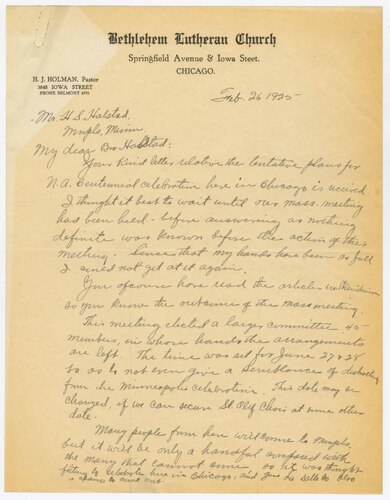 Bethlehem Lutheran Church
Springfield Avenue & Iowa Steet.
CHICAGO.
H. J. HOLMAN, Pastor
3648 IOWA STREET
PHONE BELMONT
Feb. 26 1925
Mr. H S Halstad,
Mnpls, Minn
My dear Bro Halstad:
Your kind letter relative the tentative plans for
N.A. Centennial celebration here in Chicago is received
I thought it best to wait until our mass meeting
had been held - before answering as nothing
definite was known before the action of this
meeting. Since that my hands have been so full
I could not get at it again.
You ofcourse have read the articles in
so you know the outcome of the mass meeting.
This meeting elected a larger committee 45
members, in whose hands the arrangements
are left. The time was set for June 27 & 28
so as to not even give a semblance of distracting
from the Minneapolis celebration. This date may be
changed, if we can secure St. Olaf Choir at some other
date.
Many people from here will come to Mnpls
but it will be only a handful compared with
the many that cannot come, so it was thought
fitting to celebrate here in Chicago, and give the also
a chance to